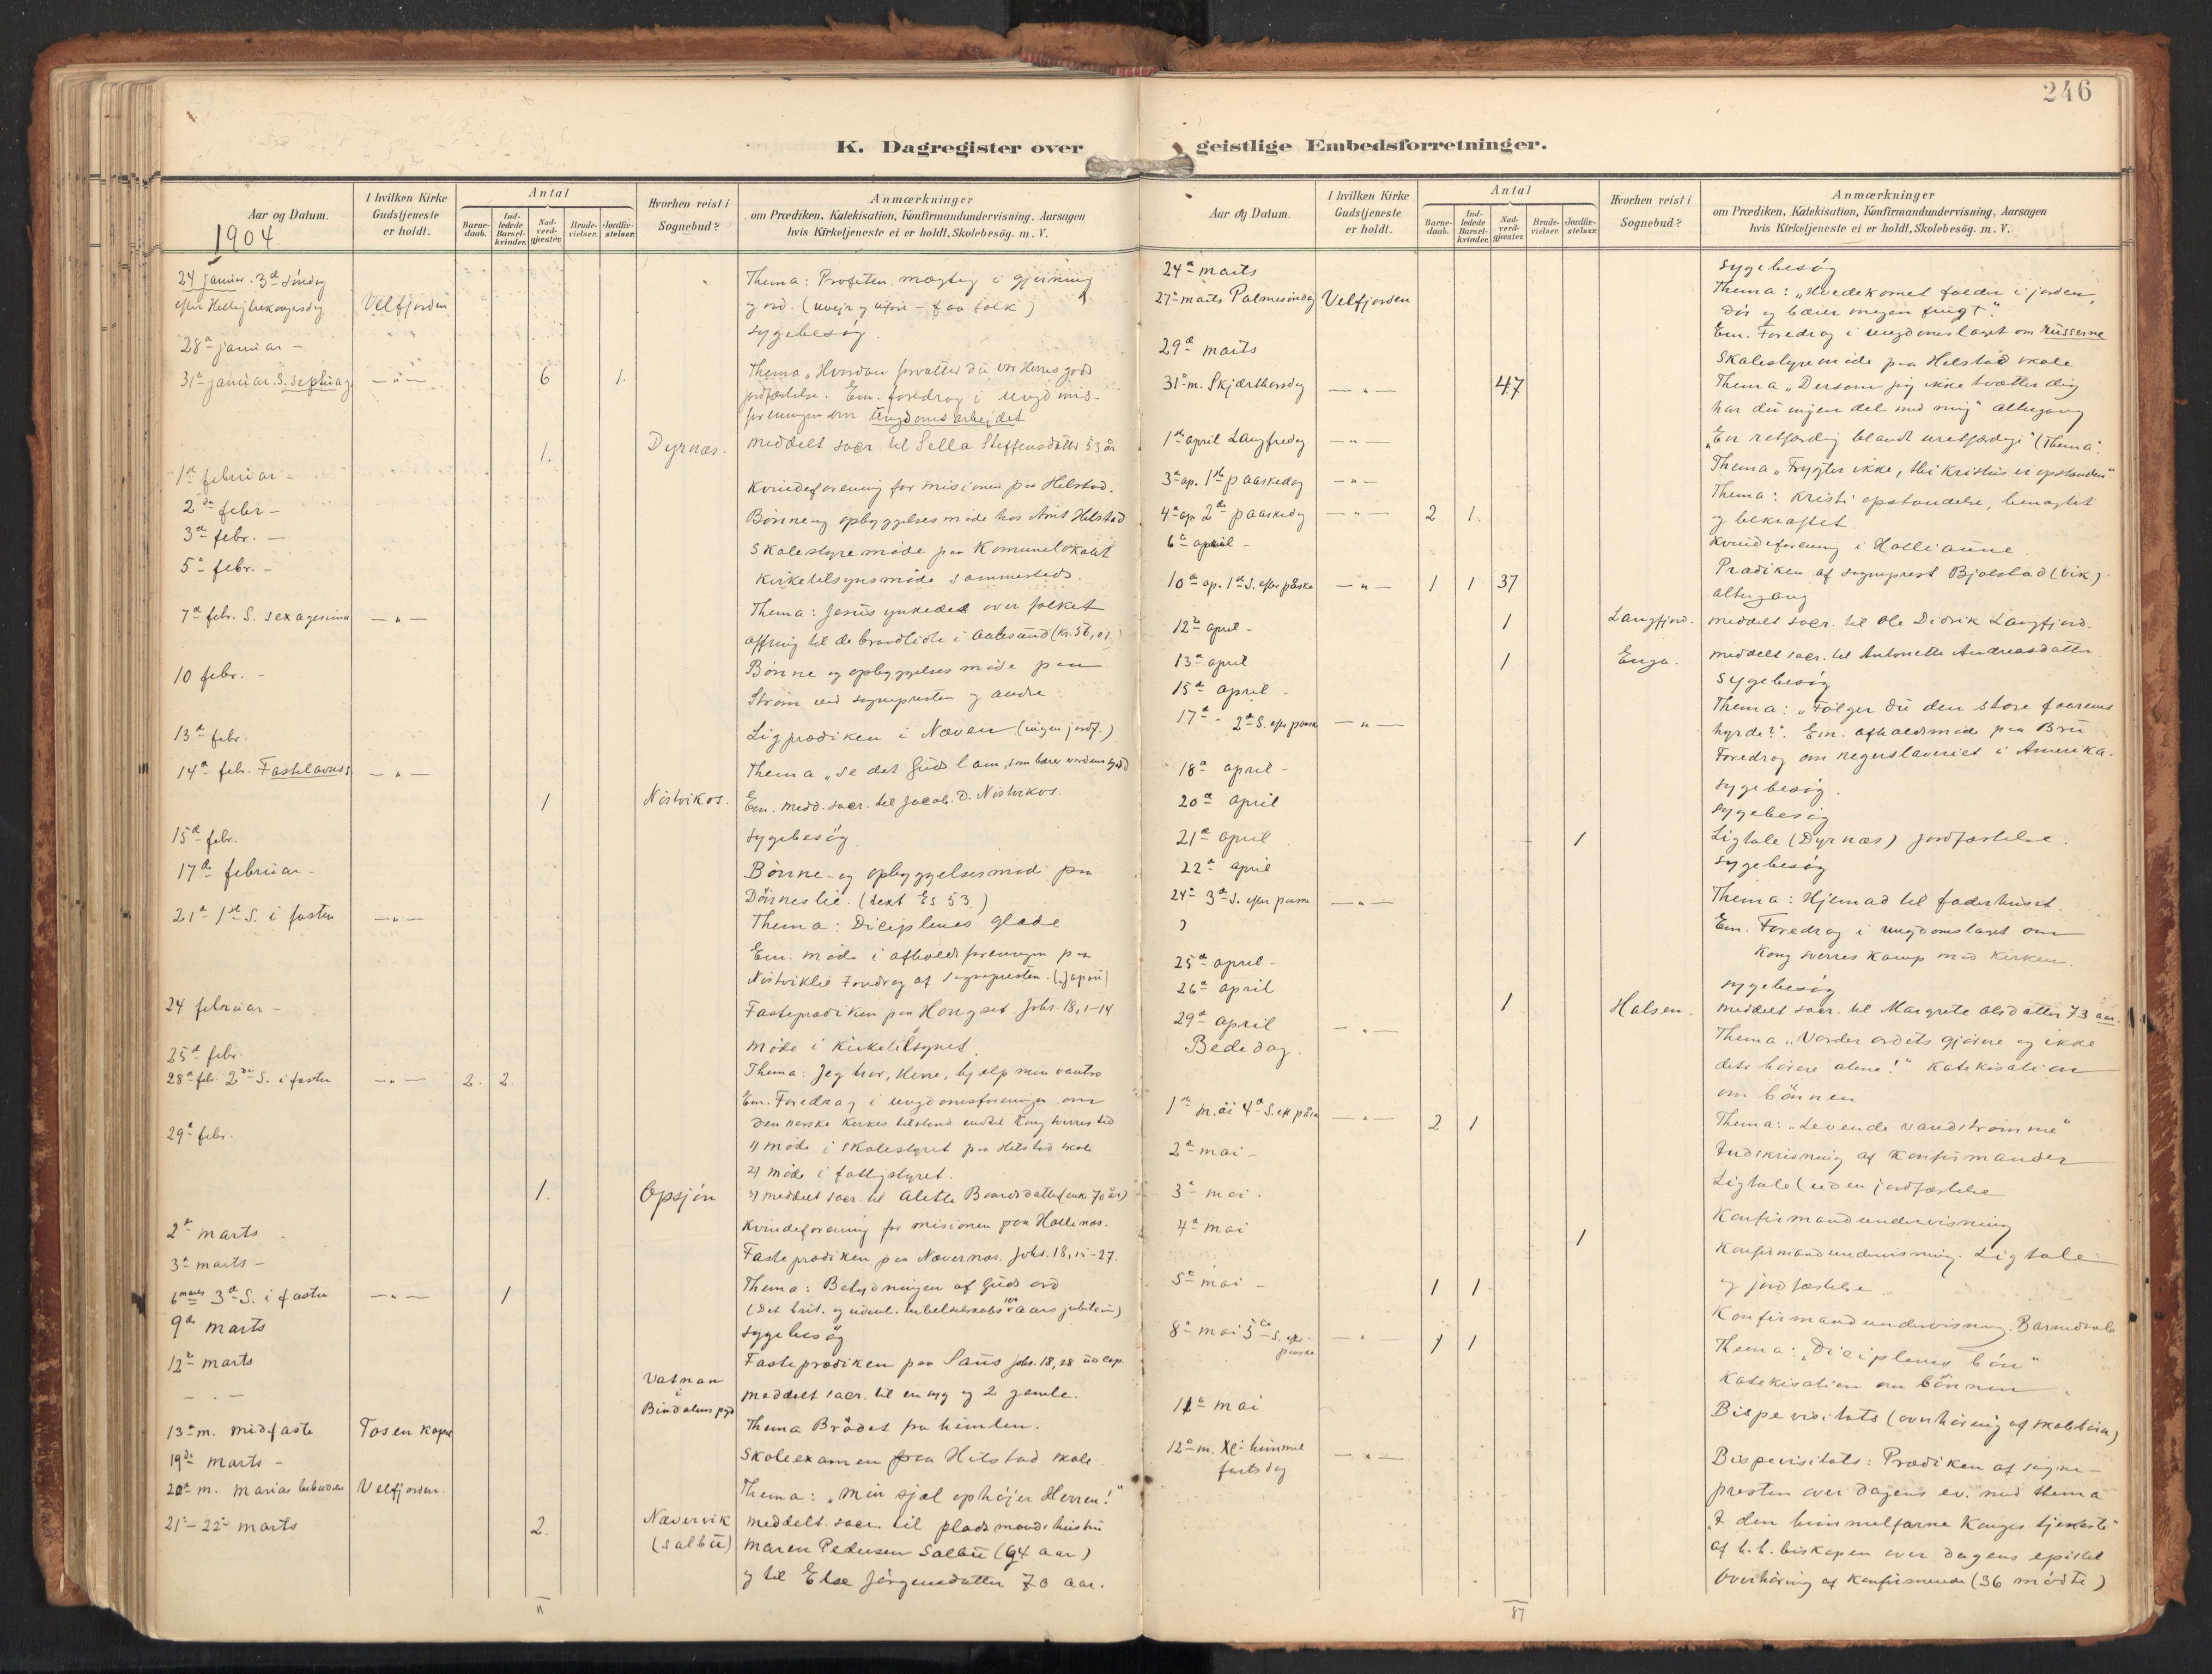 246
K. Dagregister over
Aar og Datum.
I hvilken Kirke Gudstjeneste er holdt.
Antal
Barne-daab.
Ind-ledede Barsel-kvinder.
Nad-verd-gjester.
Brude-vielser.
Jordfæ-stelser.
Hvorhen reist i Sognebud?
Anmærkninger
om Prædiken, Katekisation, Konfirmandundervisning, Aarsagen
hvis Kirketjeneste ei er holdt, Skolebesög. m. V.
1904.
24 januar. 3die Söndag Thema: Profeten mægtig i gjerning
efter Hellig trekongersdag Velfjorden og ord. (uveir og uföre - faa folk)
28de januar - Sygebesög.
31te januar. S. Septuag. — " — 6 1. Thema "Hvordan forvalter du vor Herres gods
jordfæstelse. Em. foredrag i ungd. mis-
foreningen om Ungdomsarbeidet
1. Dyrnæs. meddelt sacr. til Sella Steffensdatter 53 år
1ste februar - Kvindeforening for misionen paa Helstad.
2den febr - Bönne og opbyggelses möde hos Arnt Helstad
3de febr. - Skolestyremöde paa Komunelokalet
5te febr. - Kirketilsynsmöde sammesteds.
7de febr. S. sexagesima — " — Thema: Jesus ynkedes over folket
offring til de brandlidte i Aalesund (Kr. 56,01.)
10 febr. - Bönne og opbyggelses möde paa
Ström ved sognepresten og andre
13de febr. Ligprædiken i Næven (ingen jordf.)
14de feb. Fastelavnss. — " — Thema "Se det Guds lam, som bærer verdens synd"
1 Nöstvikos. Em. medd. sacr. til Jacob D. Nöstvikos.
15de febr. Sygebesög.
17de februar - Bönne- og opbyggelsesmöde paa
Dörneslie. (text Es 53.)
21de 1ste S. i fasten — " — Thema: Diciplenes glæde
Em. möde i afholdsforeningen paa
Nöstviklie Foredrag af sognepresten. (Japan)
24 februar - Fasteprædiken paa Hongset Johs. 18, 1-14
25de febr. möde i Kirketilsynet.
28de feb. 2den S. i fasten — " — 2. 2. Thema: Jeg tror, Herre, hjælp min vantro
Em. Foredrag i ungdomsforeningen om
den norske Kirkes tilstand indtil Kong Sverres tid
29de febr. 1) möde i Skolestyret paa Helstad skole
2) möde i fattigstyret.
1. Opsjön 3) meddelt sacr. til Aletta Baardsdatter (enke 70 år)
2den marts Kvindeforening for misionen paa Hallenæs.
3de marts - Fasteprædiken paa Nævernæs. Johs. 18, 15-27.
6 marts 3de S. i fasten — " — 1 Thema: Betydningen af Guds ord
(Det brit. og udenl. bibelselskabs 100 aars jubilæum)
9de marts Sygebesög
12te marts Fasteprædiken paa Saus Johs. 18, 28 ud cap.
— " — Vatnan i Bindalens pgd meddelt sacr. til en syg og 2 gamle.
13de m. midfaste Tosen kapel Thema Brödet fra himlen.
19de marts - Skoleexamen paa Helstad skole
20de m. Marias bebudelse Velfjorden. Thema: "Min sjæl ophöjer Herren!"
21de-22de marts 2. Nævervik meddelt sacr. til pladsmands hustru
(Salbu) Maren Pedersen Salbu (94 aar)
og til Else Jörgensdatter 70 aar.
11
geistlige Embedsforretninger.
Aar og Datum.
I hvilken Kirke Gudstjeneste er holdt.
Antal
Barne-daab.
Ind-ledede Barsel-kvinder.
Nad-verd-gjester.
Brude-vielser.
Jordfæ-stelser.
Hvorhen reist i Sognebud?
Anmærkninger
om Prædiken, Katekisation, Konfirmandundervisning, Aarsagen
hvis Kirketjeneste ei er holdt, Skolebesög. m. V.
24de marts Sygebesög
27de marts Palmesöndag Velfjorden Thema: "Hvedekornet falder i jorden,
dör og bærer megen frugt."
Em. Foredrag i ungdomslaget om russerne
29de marts Skolestyremöde paa Helstad skole
31te m. Skjærthorsdag — " — 47 Thema "Dersom jeg ikke tvætter dig
har du ingen del med mig" altergang
1ste april Langfredag — " — "En retfærdig blandt uretfærdige" (Thema.
3de ap. 1ste paaskedag — " — Thema "Frygter ikke, thi Kristus er opstanden"
4de ap 2den paaskedag — " — 2 1. Thema: Kristi opstandelse, benægtet
og bekræftet.
6te april - Kvindeforening i Hollianne
10de ap. 1ste S. efter påske — " — 1 1 37 Prædiken af sogneprest Bjelstad (Vik).
altergang
12te april - 1 Langfjord. meddelt sacr. til Ole Didrik Langfjord.
13de april 1 Enga. meddelt sacr. til Antonette Andreasdatter
15de april - Sygebesög
17de - 2den S. efter paaske — " — Thema: "Fölger du den store faarenes
hyrde?". Em. afholdsmöde paa Bru
Foredrag om negerslaveriet i Amerika.
18de april - Sygebesög.
20de april Sygebesög
21de april 1 Ligtale (Dyrnæs) jordfæstelse.
22de april Sygebesög
24de 3de S. efter paaske — " — Thema: Hjemad til faderhuset.
Em. Foredrag i ungdomslaget om
Kong Sverres Kamp med Kirken.
25de april - Sygebesög
26de april 1 Halsen. meddelt sacr. til Margrete Olsdatter 73 aar.
29de april — " — Thema "Vorder ordets gjörere og ikke
Bededag. dets hörere alene!" Katekisation
om bönnen
1ste mai 4de S. eft påske — " — 2 1 Thema: "Levende vandströmme"
2den mai - Indskrivning af Konfirmander
3de mai. Ligtale (uden jordfæstelse
4de mai Konfirmandundervisning
1 Konfirmandundervisning. Ligtale
5te mai - 1 1 og jordfæstelse.
Konfirmandundervisning. Barnedaab
8de mai 5te S. efter paaske — " — 1 1 Thema: "Diciplenes bön"
Katekisation om bönnen.
11te mai Bispevisitats (overhöring af skolebörn)
12te m. Xi himmelfartsdag — " — Bispevisitats: Prædiken af sogne-
presten over dagens ev. med thema
"I den himmelfarne Konges tjeneste"
af h. h. biskopen over dagens epistel
Overhöring af Konfirmerede (36 mödte)
87